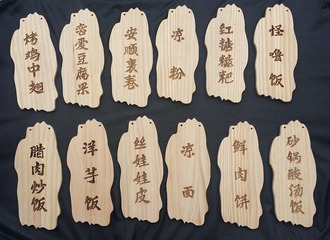 烤鸡中翅
恋爱豆腐果
安顺裹卷
凉粉
红糖糍粑
怪噜饭
腊肉炒饭
洋芋饭
丝娃娃皮
凉面
鲜肉饼
砂锅酸汤饭